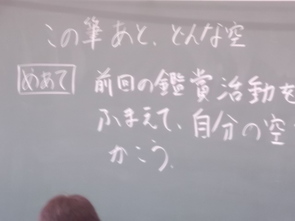 この筆あと、どんな空
めあて 前回の鑑賞活動を
ふまえて、自分の空
かこう。